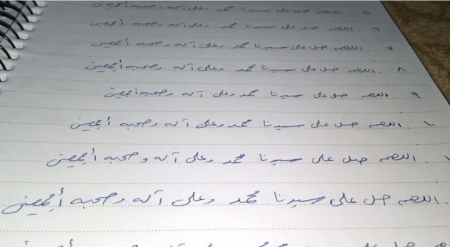 اللهم صل على سيدنا محمد وعلى آله وصحبه أجمعين
٧ . اللهم صل على سيدنا محمد وعلى آله وصحبه أجمعين
٨ . اللهم صل على سيدنا محمد وعلى آله وصحبه أجمعين
٩ . اللهم صل على سيدنا محمد وعلى آله وصحبه أجمعين
١٠ . اللهم صل على سيدنا محمد وعلى آله وصحبه أجمعين
اللهم صل على سيدنا محمد وعلى آله وصحبه أجمعين
اللهم صل على سيدنا محمد وعلى آله وصحبه أجمعين